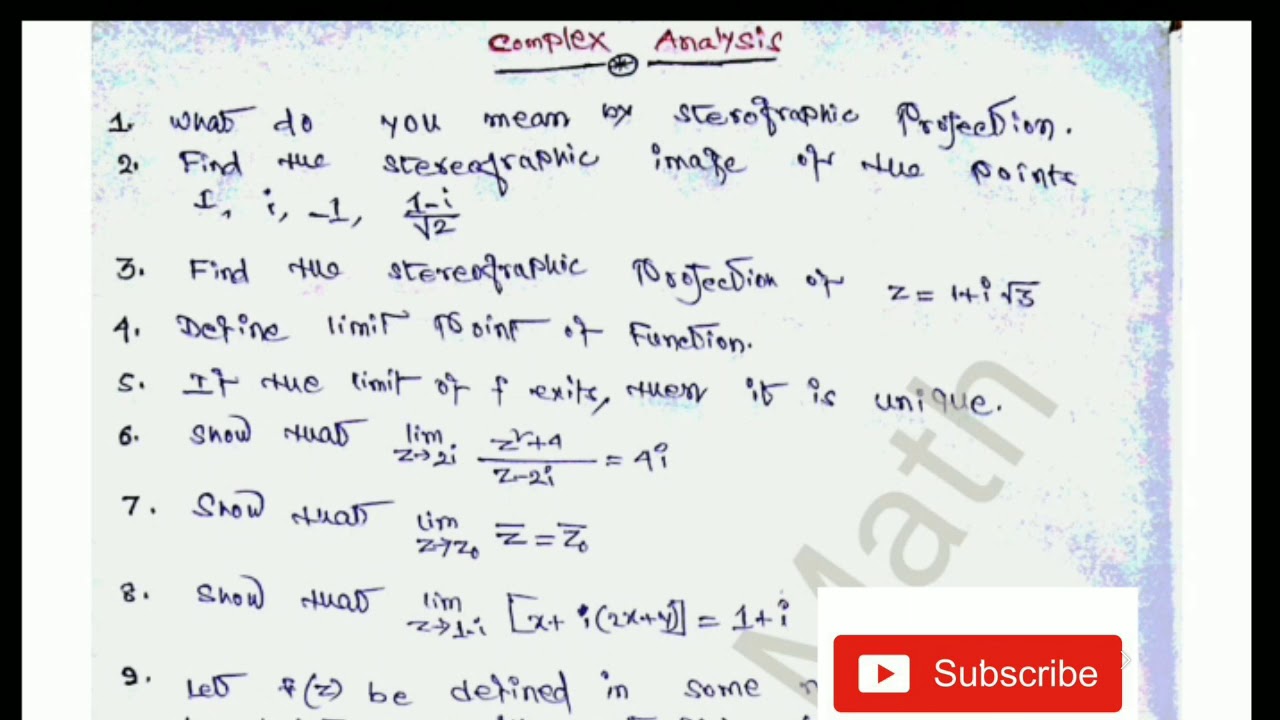 Complex Analysis
1. What do you mean by sterographic Projection.
2. Find the stereographic image of the points
1, i, -1, 1-i/√2
3. Find the stereographic Projection of z = 1+i√3
4. Define limit Point of Function.
5. If the limit of f exits, then it is unique.
6. Show that lim z→2i z²+4/z-2i = 4i
7. Show that lim z→z₀ z̅ = z̅₀
8. Show that lim z→1-i [x+i(2x+y)] = 1+i
9. Let f(z) be defined in some
Math
Subscribe